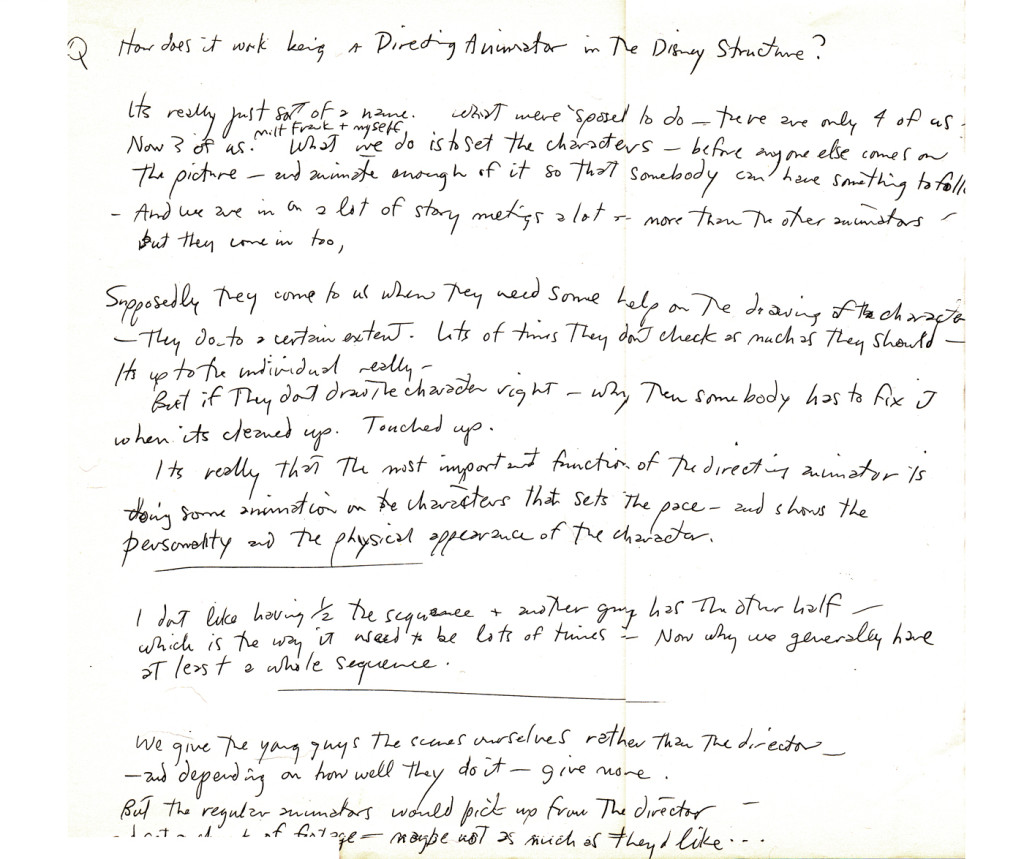 Q How does it work being a Directing Animator in the Disney Structure?
Its really just sort of a name. what were 'sposed to do — there are only 4 of us -
Milt Frank + myself
Now 3 of us. What we do is to set the characters — before anyone else comes on
the picture — and animate enough of it so that somebody can have something to foll
- And we are in on a lot of story metings a lot — more than the other animators —
but they come in too,
Supposedly they come to us when they need some help on the drawing of the characte
— They do to a certain extent. Lots of times they don't check as much as they should —
Its up to the individual really —
But if they dont draw the character right — why then somebody has to fix it
when its cleaned up. Touched up.
Its really that the most important function of the directing animator is
doing some animation on the characters that sets the pace — and shows the
personality and the physical appearance of the character.
I dont like having ½ the sequence + another guy has the other half —
which is the way it used to be lots of times — Now why we generally have
at least a whole sequence.
We give the young guys the scenes ourselves rather than the director —
— and depending on how well they do it — give more.
But the regular animators would pick up from the director —
of footage — maybe not as much as they'd like ...